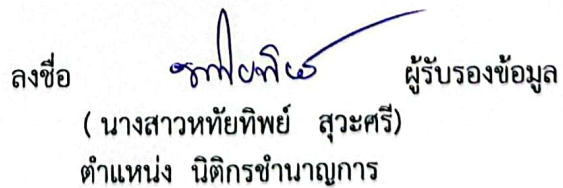 ลงชื่อ หทัยทิพย์ ผู้รับรองข้อมูล
( นางสาวหทัยทิพย์ สุวะศรี)
ตำแหน่ง นิติกรชำนาญการ